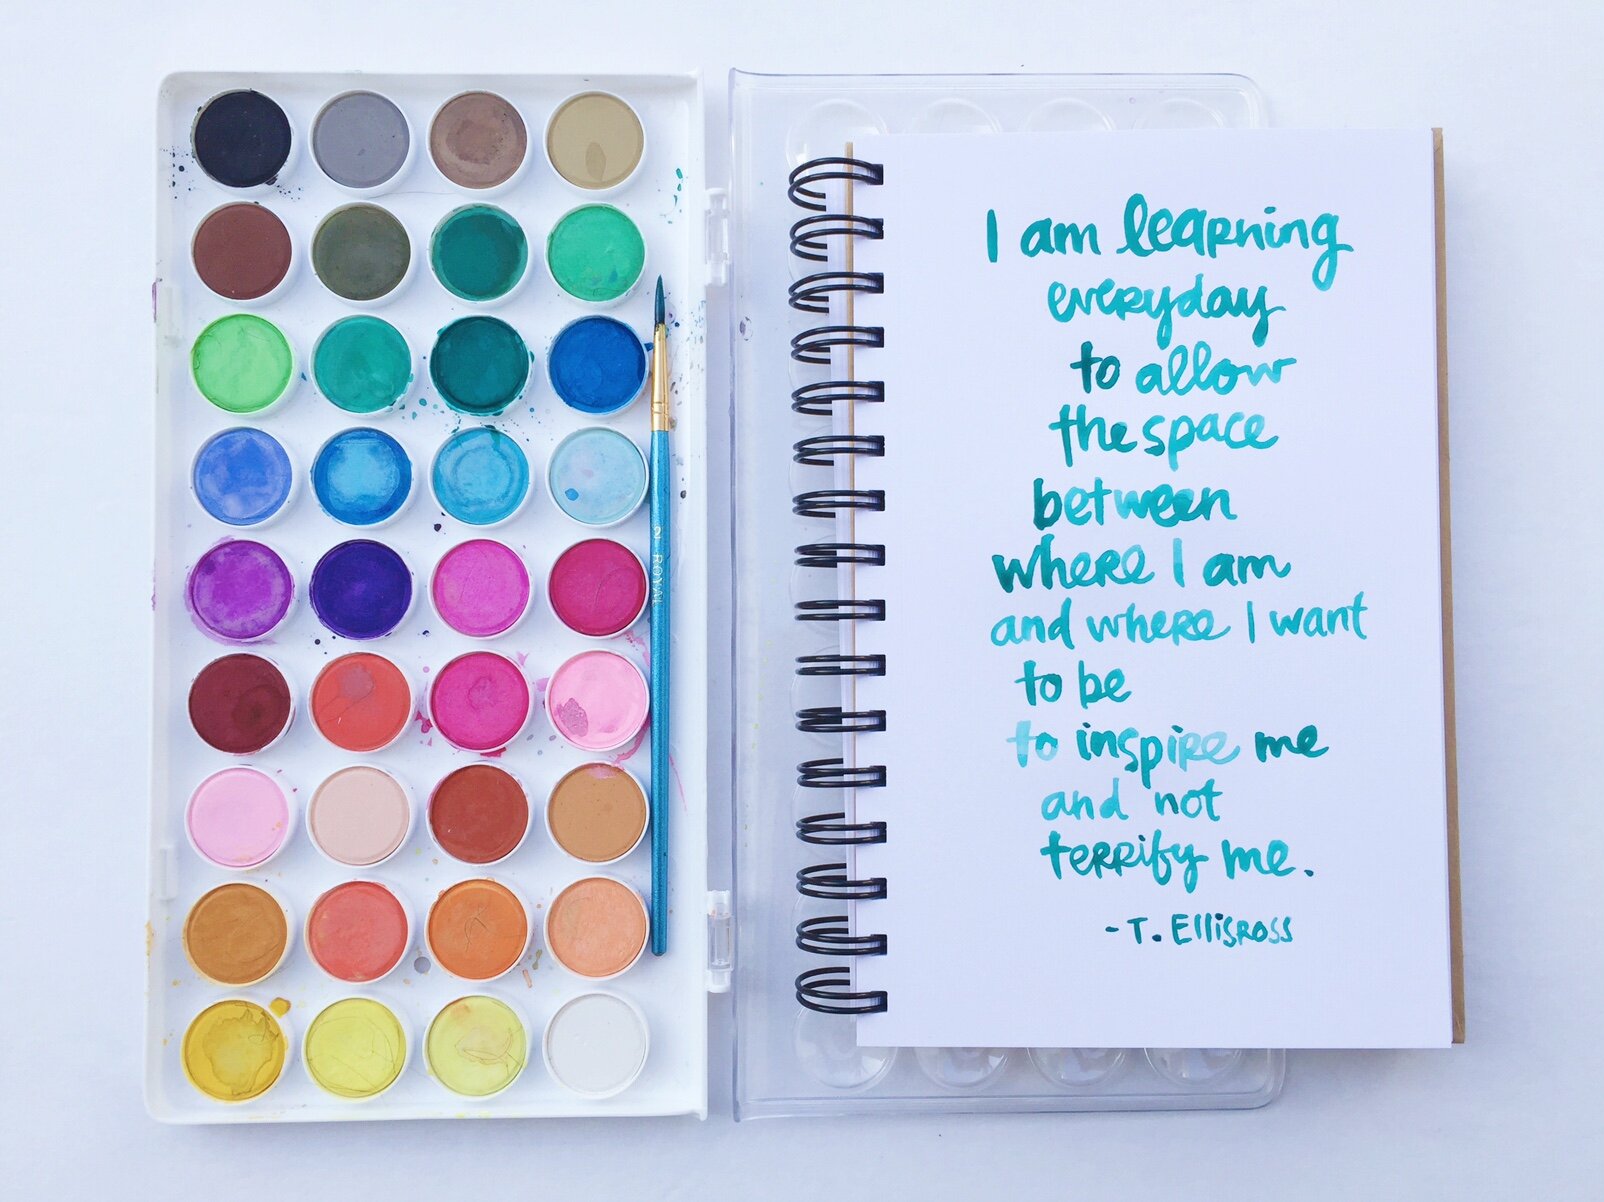 2 ROYAL
I am learning
everyday
to allow
the space
between
where I am
and where I want
to be
to inspire me
and not
terrify me.
- T. Ellisross